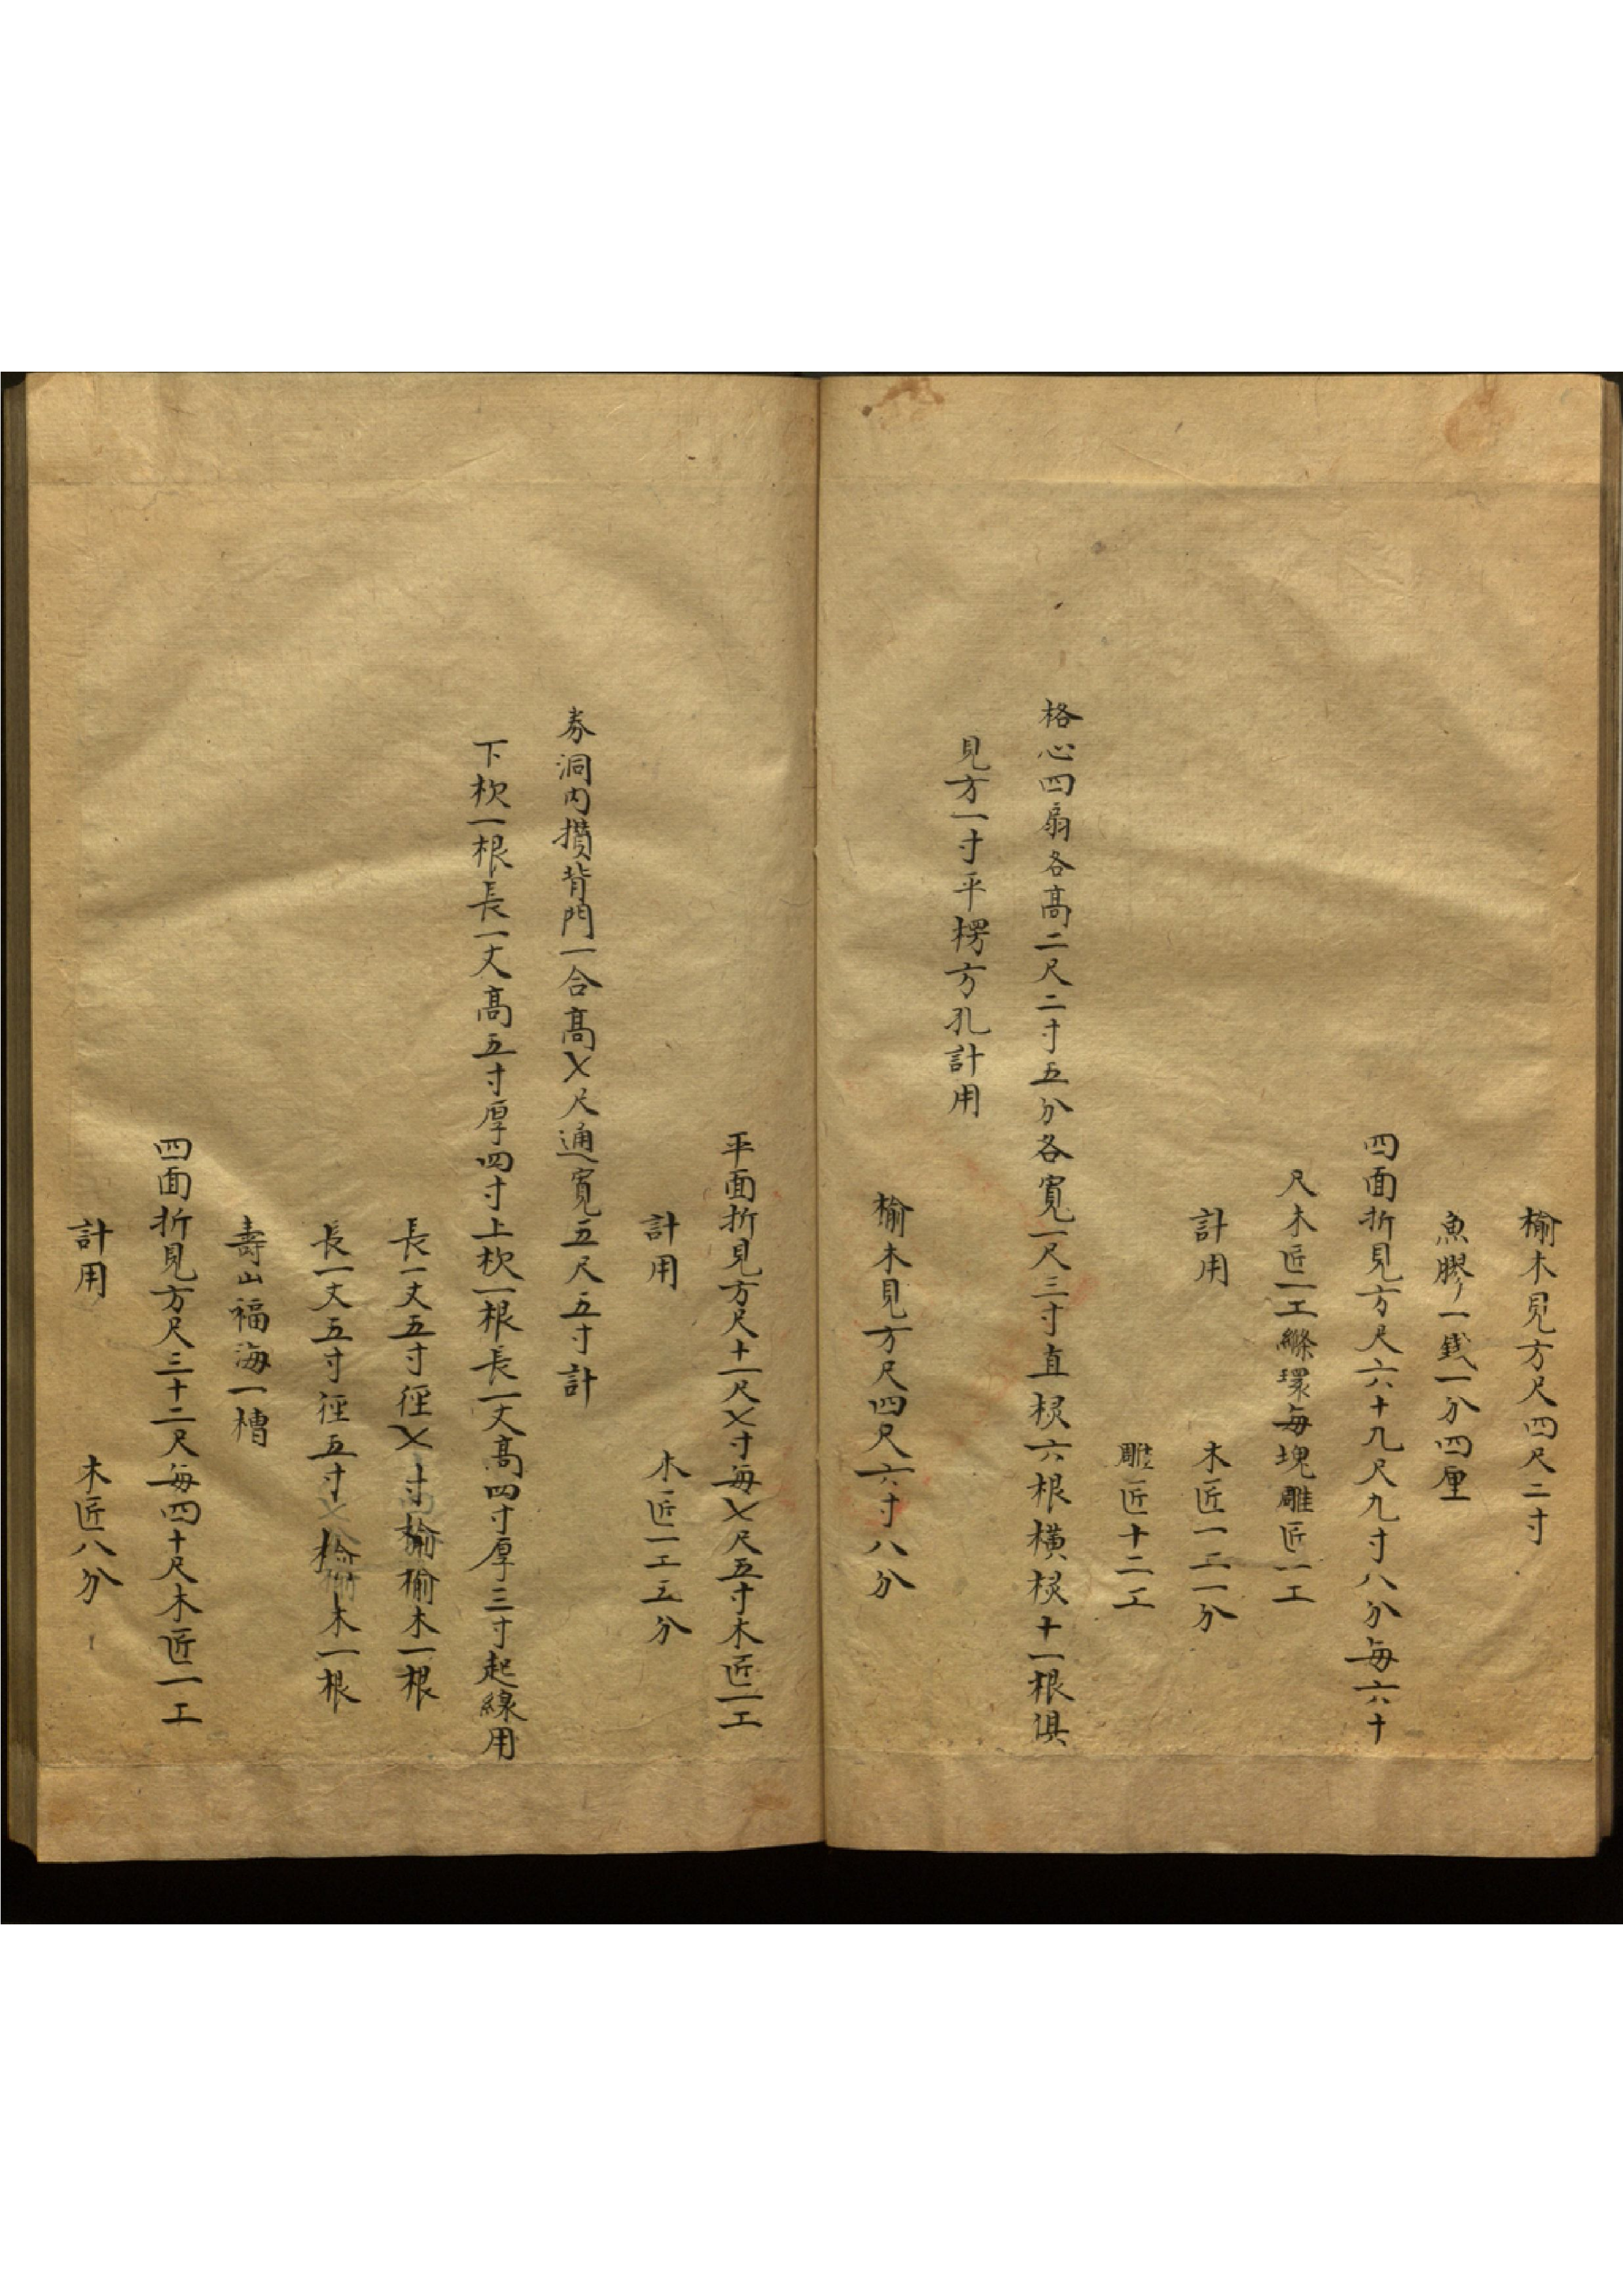 榆木見方尺四尺二寸
魚膠一錢一分四厘
四面折見方尺六十九尺九寸八分每六十
尺木匠一工縧環每塊雕匠一工
計用　木匠一工一分
雕匠十二工
格心四扇各高二尺二寸五分各寬一尺三寸直棂六根橫棂十一根俱
見方一寸平楞方孔計用
榆木見方尺四尺六寸八分
平面折見方尺十一尺〤寸每〤尺五寸木匠一工
計用　木匠一工五分
券洞內攢背門一合高〤尺通寬五尺五寸計
下杴一根長一丈高五寸厚四寸上杴一根長一丈高四寸厚三寸起線用
長一丈五寸徑〤寸榆榆木一根
長一丈五寸徑五寸榆木一根
壽山福海一槽
四面折見方尺三十二尺每四十尺木匠一工
計用　木匠八分